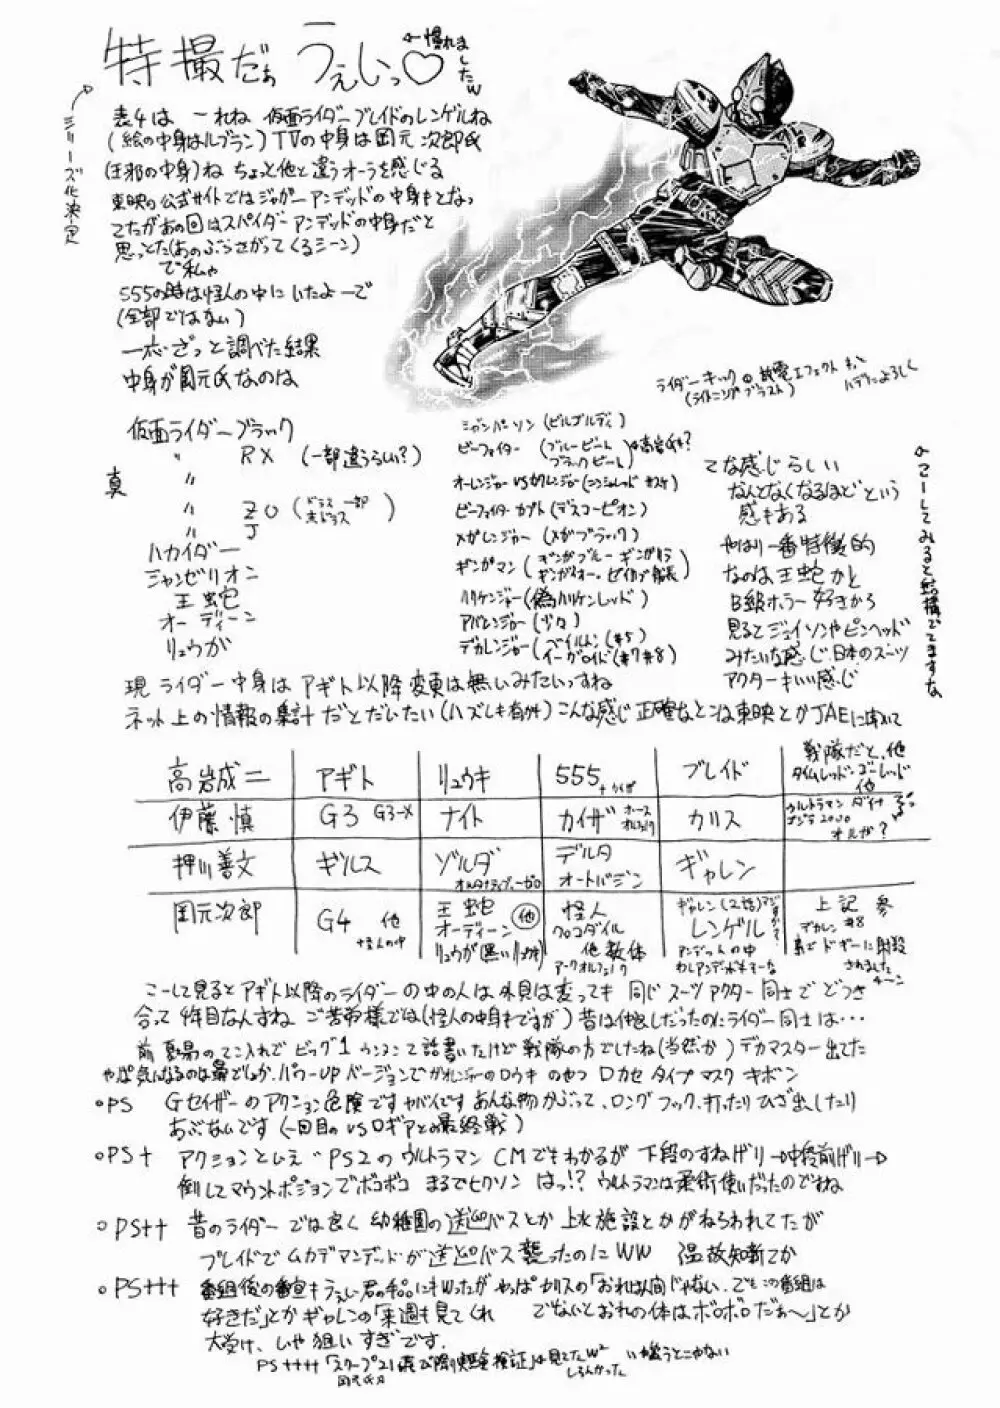 特撮だぁ うぇしぃっ♡
←慣れましたw
シリーズ化決定
表4は 一れね 仮面ライダーブレイドのレンゲルね
(絵の中身はルブラン)TVの中身は岡元 次郎氏
(王邪の中身)ね ちょっと他と違うオーラを感じる
東映の公式サイトではジャガーアンデッドの中身もとなっ
てたがあの回はスパイダーアンデッドの中身だと
思っとた(あのぶらさがってくるシーン)
で私ゃ
555の時は怪人の中にいたよーで
(全部ではない)
一応ざっと調べた結果
中身が岡元氏なのは
ライダーキックの放電エフェクトも
(ライトニングブラスト)
ハデによろしく
仮面ライダーブラック
〃 RX (一部違うらしい?)
真 〃
〃 ZO (ドラス一部
赤ドラス)
〃 J
ハカイダー
ジャンゼリオン
王蛇
オーディーン
リュウガ
ジャンパーソン(ビルゴルディ)
ビーファイター (ブルービート
ブラックビート)
オーレンジャーVSカクレンジャー(ニンジャレッド サスケ)
ビーファイターカブト(デスコーピオン)
メガレンジャー (メガブラック)
ギンガマン (ギンガブルー ギンガイエロー
)
ハリケンジャー(偽ハリケンレッド)
アバレンジャー(少々)
デカレンジャー(ベイルドン(#5)
イーガロイド(#7#8)
てな感じらしい
なんとなくなるほどという
感もある
やはり一番特徴的
なのは王蛇かと
B級ホラー好きから
見るとジェイソンやピンヘッド
みたいな感じ 日本のスーツ
アクターもいい感じ
←こーしてみると結構でてますな
現ライダー中身は アギト以降変更は無いみたいっすね
ネット上の情報の集計だとだいたい(ハズしも有かも)こんな感じ 正確なとこは東映とかJAEに
高岩成二 アギト リュウキ 555 +カイザ ブレイド 戦隊だと、他 タイムレッド・ゴーレッド 他
伊藤慎 G3 G3-X ナイト カイザ ホースオルフェノク カリス ウルトラマンダイナ ゴジラ2000 オルガ?
押川善文 ギルス ゾルダ オルタナティブ・ゼロ デルタ オートバジン ギャレン
岡元次郎 G4 他 怪人の中 王蛇 オーディーン リュウガ(黒いリュウキ) 他 怪人 クロコダイル 他数体 アークオルフェノク ギャレン(2話) レンゲル アンデットの中 上記 参 デカレン#8 でドギーに射殺されました チーン
こーして見るとアギト以降のライダーの中の人は外見は変っても 同じスーツアクター同士でどつき
合って4年目なんすね ご苦労様では(怪人の中身もですが)昔は仲良しだったのにライダー同士は・・・
前夏場のてこ入れでビッグ1ウンヌンて話書いたけど戦隊の方でしたね(当然か)デカマスター出てた
やっぱ気になるのは鼻でしょか、パワーUPバージョンでガオレンジャーのロウキのやつロカセタイプマスクキボン
○PS Gセイザーのアクション危険ですヤバイですあんな物かぶって、ロングフック、打ったりひざ出したり
あぶないです(一回目のVSロギアとの最終戦)
○PS+ アクションといえばPS2のウルトラマンCMでもわかるが 下段のすねげり→中段前げり→
倒してマウントポジションでボコボコ まるでヒクソン はっ!? ウルトラマンは柔術使いだったのですね
○PS++ 昔のライダーでは良く幼稚園の送迎バスとか上水施設とかがねらわれてたが
ブレイドでムカデアンデッドが送迎バス襲ったのにWW 温故知新てか
○PS+++ 番組後の番宣もうぇしぃ君のにもwったが やっぱカリスの「おれは人間じゃない、でもこの番組は
好きだ」とかギャレンの「来週も見てくれ でないとおれの体はボロボロだぁ〜」とか
大受け、しや狙いすぎです。
PS++++ 「スクープ21 飛び降り実験検証」は見てたw² い嫌うとこゃない
岡元氏が
しらんかったん